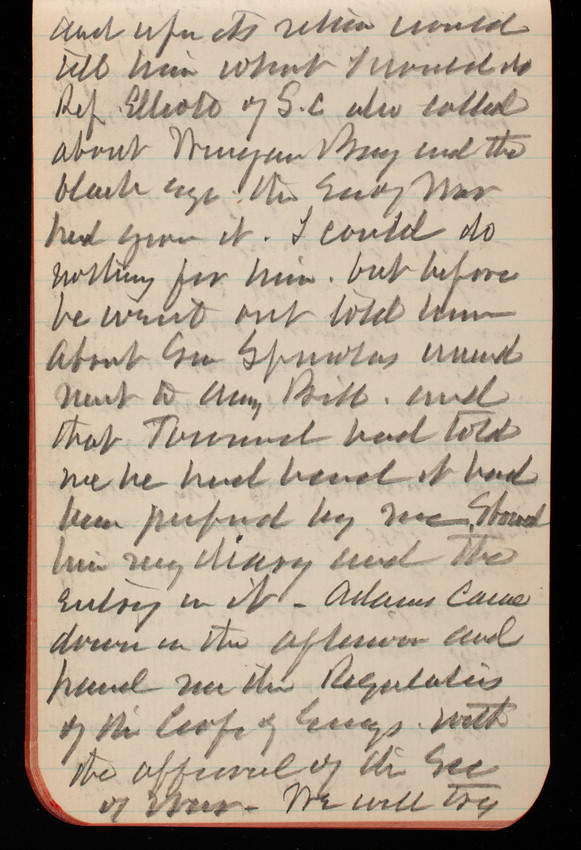 and upon its return would
tell him what I would do
Rep. Elliott of S.C also called
about Wingan Bay and the
black eye. the Sec of War
had given it. I could do
nothing for him. but before
he went out told him
about Gen Spinolas amend
ment to Army Bill. and
that Townsend had told
me he had heard it had
been prepared by me Showed
him my diary and the
entry in it - Adams came
down in the afternoon and
hand me the Regulations
of the Corps of Engs. with
the approval of the Sec
of War - We will try